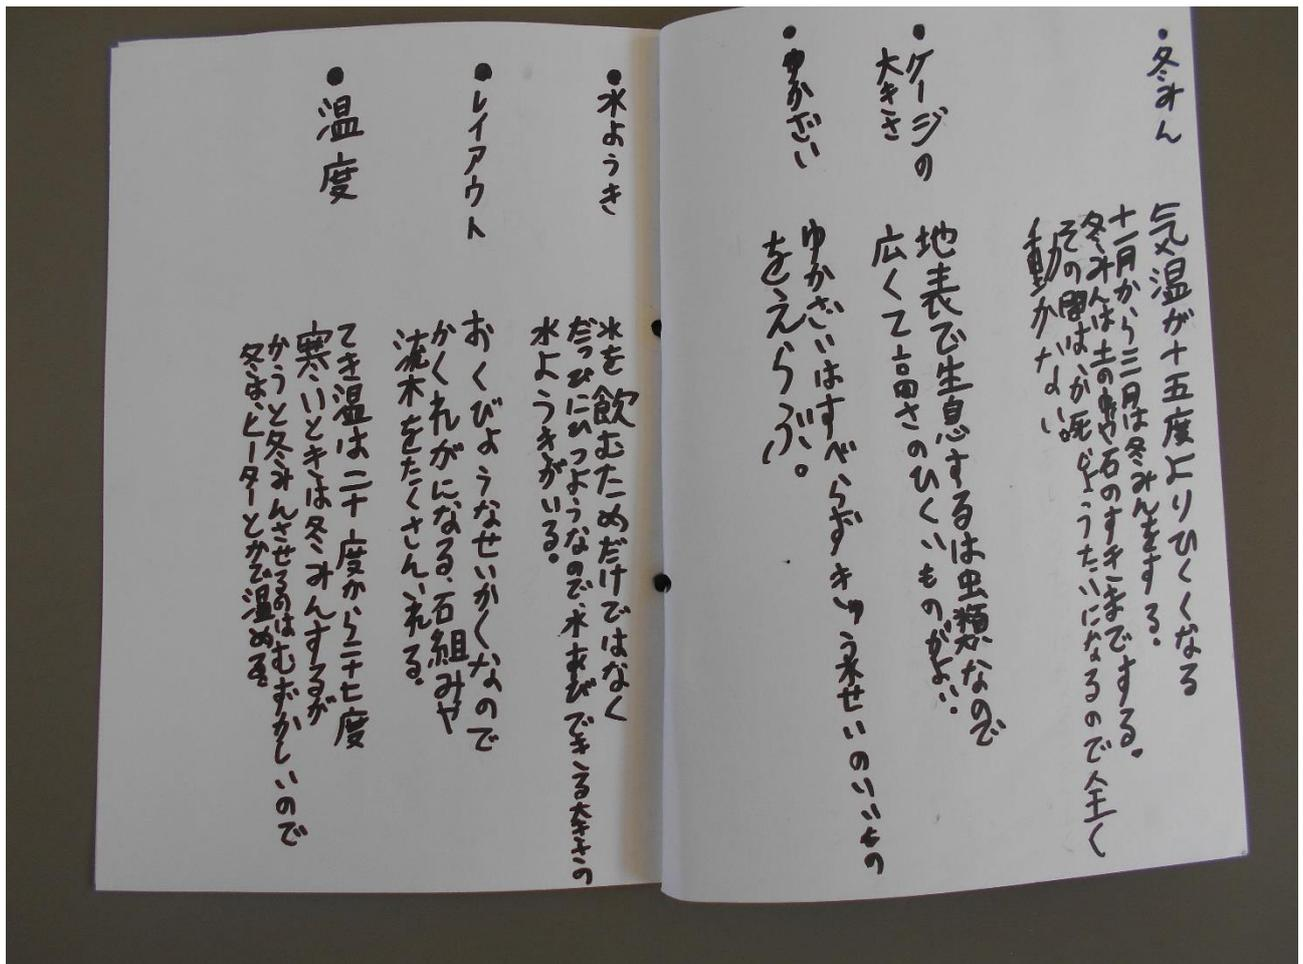 ・冬みん
気温が十五度よりひくくなる
十一月から三月は冬みんをする。
冬みんは土の中や石のすきまでする。
その間はか死じょうたいになるので全く
動かない。
・ケージの
大きさ
地表で生息するは虫類なので
広くて高さのひくいものがよい。
・ゆかざい
ゆかざいはすべらずきゅう水せいのいいもの
をえらぶ。
・水ようき
水を飲むためだけではなく
だっぴにひつようなので、水あびできる大きさの
水ようきがいる。
・レイアウト
おくびょうなせいかくなので
かくれがになる、石組みや
流木をたくさんいれる。
・温度
てき温は二十度から二十七度
寒いときは冬みんするが
かうと冬みんさせるのはむずかしいので
冬は、ヒーターとかで温める。